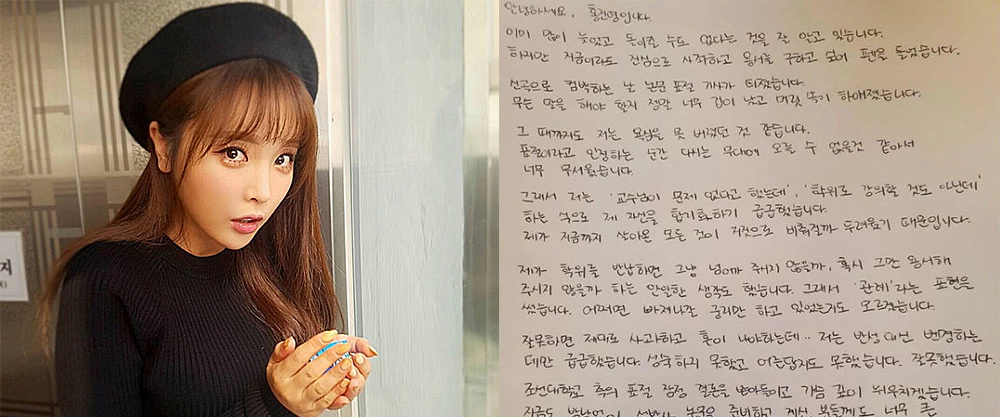 지
안녕하세요, 홍진영입니다.
이미 많이 늦었고 돌이킬 수도 없다는 것을 잘 알고 있습니다.
하지만 지금이라도 진심으로 사죄하고 용서를 구하고 싶어 펜을 들었습니다.
신곡으로 컴백하는 날 논문 표절 기사가 터졌습니다.
무슨 말을 해야 할지 정말 너무 겁이 났고 머릿속이 하얘졌습니다.
그 때까지도 저는 욕심을 못 버렸던 것 같습니다.
표절이라고 인정하는 순간 다시는 무대에 오를 수 없을것 같아서
너무 무서웠습니다.
그래서 저는 '교수님이 문제 없다고 했는데', '학위로 강의할 것도 아닌데'
하는 식으로 제 자신을 합리화하기 급급했습니다.
제가 지금까지 살아온 모든 것이 거짓으로 비춰질까 두려웠기 때문입니다.
제가 학위를 반납하면 그냥 넘어가 주시지 않을까, 혹시 그만 용서해
주시지 않을까 하는 안일한 생각도 했습니다. 그래서 '관례'라는 표현을
썼습니다. 어쩌면 빠져나갈 궁리만 하고 있었는지도 모르겠습니다.
잘못하면 제대로 사과하고 혼이 나야하는데.. 저는 반성 대신 변명하는
데만 급급했습니다. 성숙하지 못했고 어른답지도 못했습니다. 잘못했습니다.
조선대학교 측의 표절 잠정 결론을 받아들이고 가슴 깊이 뉘우치겠습니다.